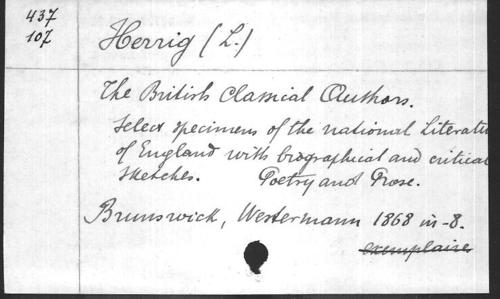 437
107
Herrig (L.)
The British Classical Authors.
Select specimens of the national Literatu
of England with biographical and critical
sketches. Poetry and Prose.
Brunswick, Westermann 1868 in-8.
exemplaire